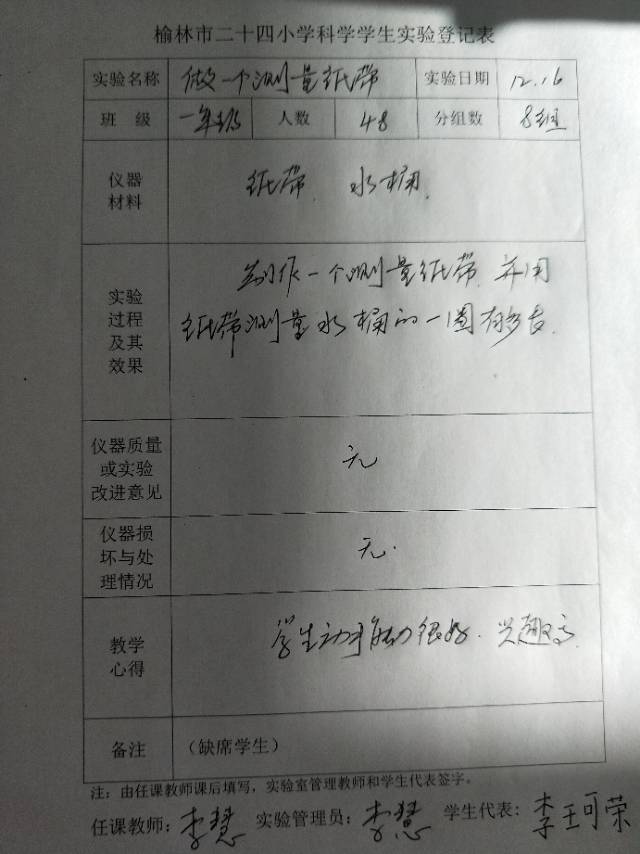 榆林市二十四小学科学学生实验登记表
实验名称 做一个测量纸带 实验日期 12.16
班 级 一年级 人数 48 分组数 8组
仪器
材料
纸带 水桶.
实验
过程
及其
效果
制作一个测量纸带,并用
纸带测量水桶的一圈有多长.
仪器质量
或实验
改进意见
无
仪器损
坏与处
理情况
无.
教学
心得
学生动手能力很好.兴趣高
备注 (缺席学生)
注:由任课教师课后填写,实验室管理教师和学生代表签字。
任课教师: 李慧 实验管理员: 李慧 学生代表: 李王可荣